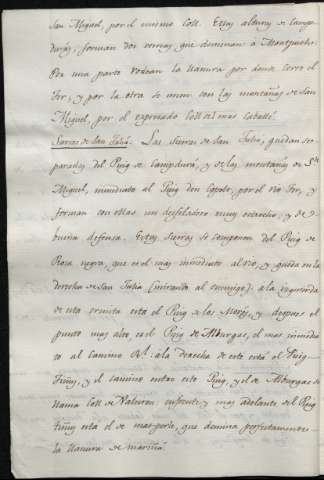 San Miguel, por el mismo Coll. Estas alturas de Campdurás, forman dos ramas que dominan a
Por una parte rodean la llanura por donde corre el
Ter, y por la otra se unen con las montañas de San
Miguel, por el expresado Coll del mas Cabellé.
Sierras de San Julia. Las sierras de San Julia, quedan se-
paradas del Puig de Campdurá, y de las montañas de Sn.
Miguel, inmediato al Puig den por el rio Ter, y
forman con ellas un desfiladero muy estrecho, y de
buena defensa. Estas sierras se componen del Puig de
Roca negra, que es el mas inmediato al rio, y queda en la
derecha de San Julia (mirando al enemigo): a la izquierda
de esta ermita está el Puig de las y despues el
punto mas alto, es el Puig de Alburgas, el mas inmedia-
to al Camino Rl.: a la derecha de este está el Puig-
Tiñy, y el camino entre este Puig, y el de Alburgas se
llama Coll de enfrente y mas adelante del Puig
Tiñy está el de que domina perfectamente
la llanura de